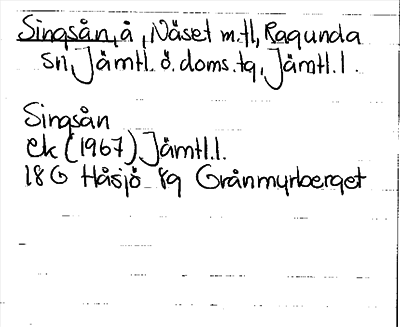 Singsån, å, Näset m.fl, Ragunda
sn, Jämtl. ö. doms. tg, Jämtl. l.
Singsån
ek (1967) Jämtl.l.
18G Håsjö 8g Grånmyrberget